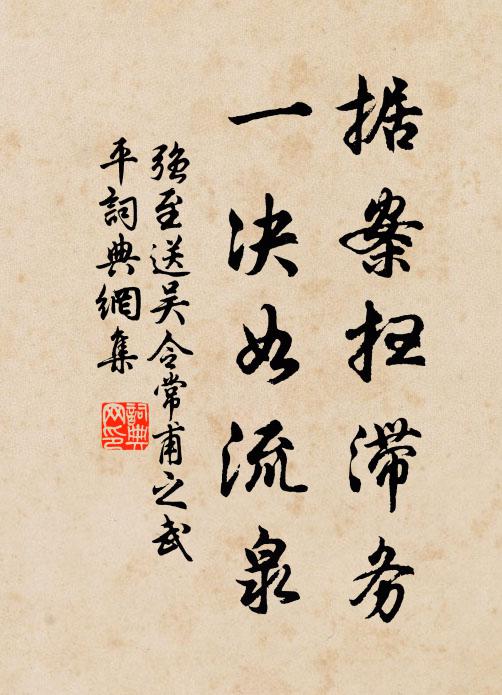 据案扫滞务
一决如流泉
强至送吴令常甫之武
平詞典網集
詞典
网印